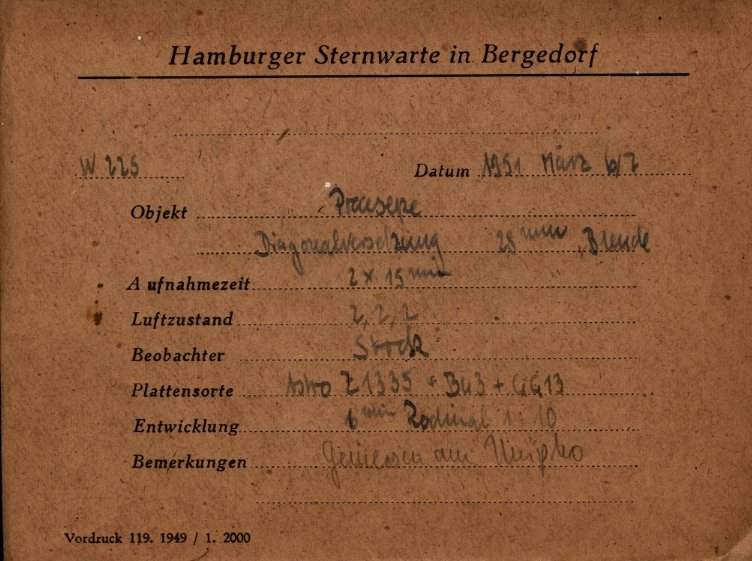 Hamburger Sternwarte in Bergedorf
W 225 Datum 1951 März 6/7
Objekt Praesepe
Diagonalversetzung 28 mm Blende
Aufnahmezeit 2 x 15 min
Luftzustand 2, 2, 2
Beobachter Stock
Plattensorte Astro Z 1335 + BG3 + GG13
Entwicklung 6 min Rodinal 1:10
Bemerkungen Gemessen am Unipho
Vordruck 119. 1949 / 1. 2000